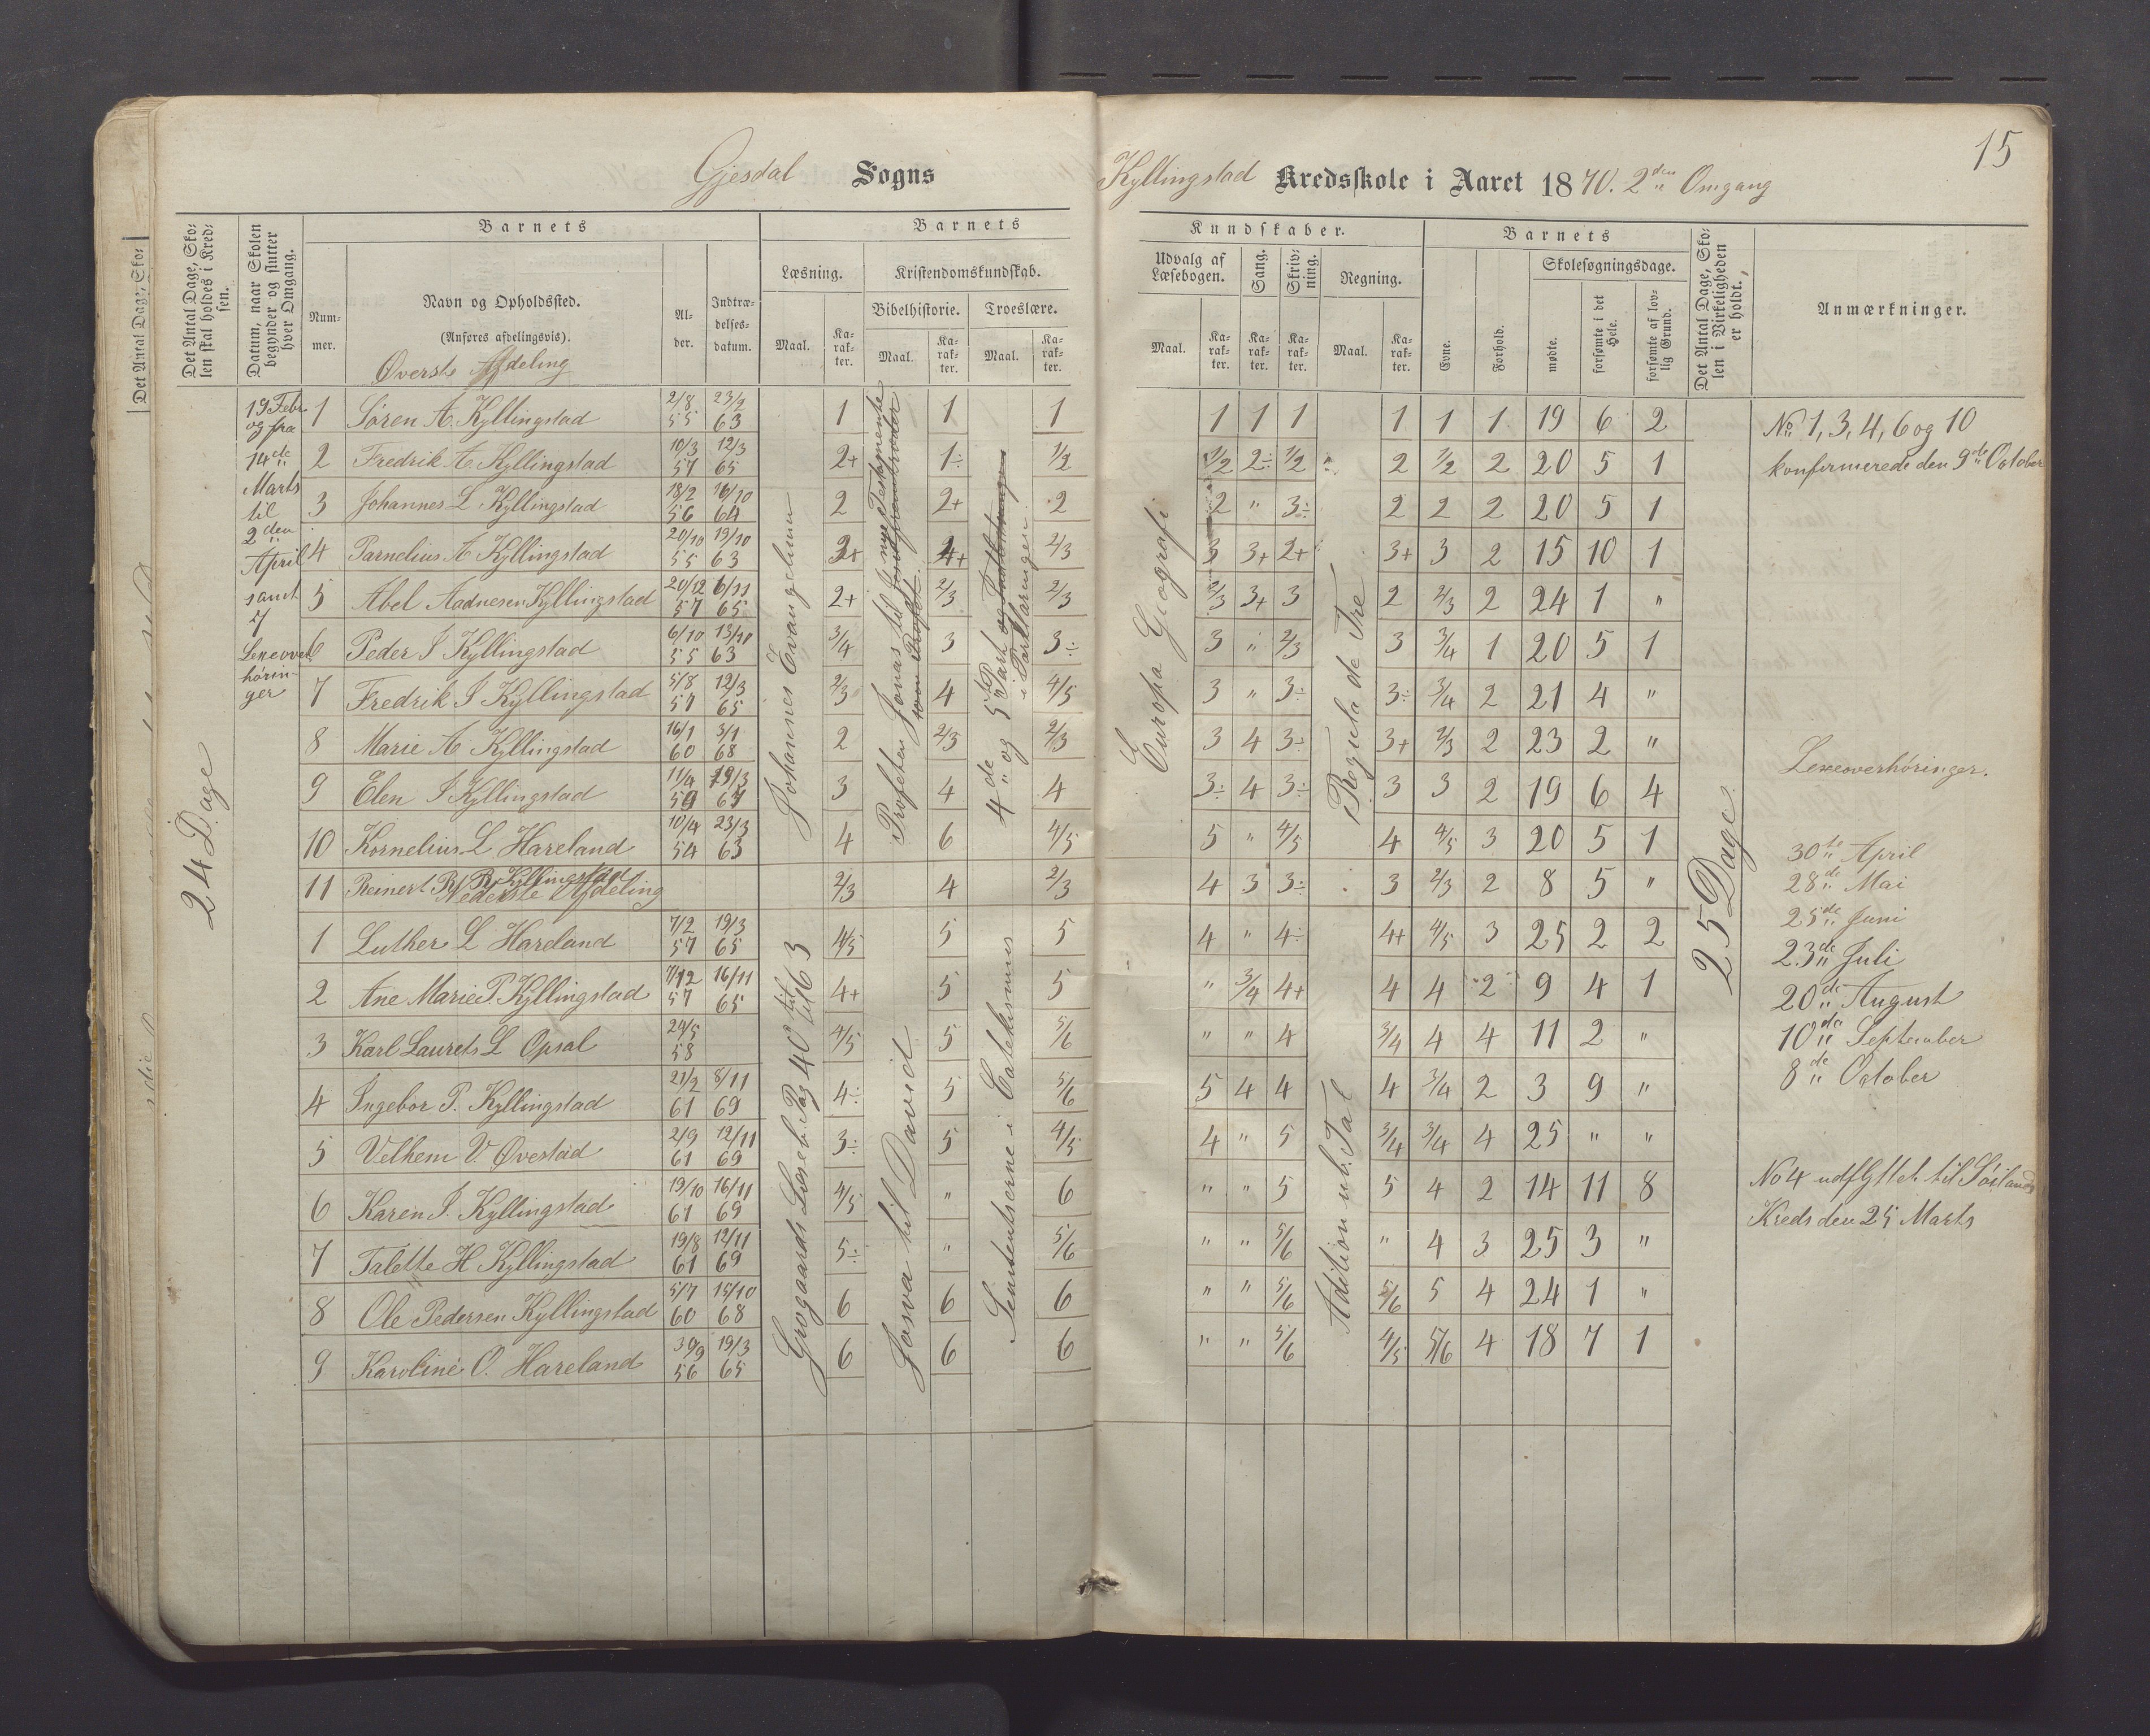 15
Gjesdal Sogns Kyllingstad Kredsskole i Aaret 1870. 2den Omgang
Det Antal Dage, Sko-
Det Antal Dage, Sko-
len skal holdes i Kred-
sen.
Datum, naar Skolen
begynder og slutter
hver Omgang.
Barnets
Num-
mer.
Navn og Opholdssted.
(Anføres afdelingsvis).
Øverste Afdeling
Al-
der.
Indtræ-
delses-
datum.
Barnets
Læsning.
Maal.
Ka-
rak-
ter.
Kristendomskundskab.
Bibelhistorie.
Maal.
Ka-
rak-
ter.
Troeslære.
Maal.
Ka-
rak-
ter.
Kundskaber.
Udvalg af
Læsebogen.
Maal.
Ka-
rak-
ter.
Sang.
Ka-
rak-
ter.
Skriv-
ning.
Ka-
rak-
ter.
Regning.
Maal.
Ka-
rak-
ter.
Barnets
Evne.
Forhold.
Skolesøgningsdage.
mødte.
forsømte i det
Hele.
forsømte af lov-
lig Grund.
Det Antal Dage, Sko-
len i Virkeligheden
er holdt.
Anmærkninger.
24 Dage
19 Febr
og fra
14de
Marts
til
2den
April
samt
7
Lexeover
hørin-
ger
Johannes Evangelium
Profeten Jonas til nye Testamente
4de og 5te Part
i Forklaringen
Europa Geografi
Regula de Tre
25 Dage
1 Søren A. Kyllingstad 2/8 55 23/2 63 1 1 1 1 1 1 1 1 1 19 6 2
2 Fredrik A. Kyllingstad 10/3 57 12/3 65 2+ 1÷ 1/2 1/2 2÷ 1/2 2 1/2 2 20 5 1
3 Johannes L Kyllingstad 18/2 56 16/10 64 2 2+ 2 2 " 3÷ 2 2 2 20 5 1
4 Parnelius A Kyllingstad 20/10 55 19/10 63 2/3 3 3+ 2+ 3+ 3 2 15 10 1
5 Abel Aadnesen Kyllingstad 20/12 57 6/11 65 2+ 2/3 2/3 2/3 3+ 3 2 2/3 2 24 1 "
6 Peder I Kyllingstad 6/10 55 13/10 63 3/4 3 3÷ 3 " 2/3 3 3/4 1 20 5 1
7 Fredrik I Kyllingstad 5/8 57 12/3 65 2/3 4 4/5 3 " 3÷ 3÷ 3/4 2 21 4 "
8 Marie A Kyllingstad 16/1 60 3/1 68 2 2/3 2/3 3 4 3÷ 3+ 2/3 2 23 2 "
9 Elen I Kyllingstad 11/4 59 3 4 4 3÷ 4 3÷ 3 3 2 19 6 4
10 Kornelius L Hareland 10/4 54 23/3 63 4 6 4/5 5 " 4/5 4 4/5 3 20 5 1
11 Reinert R. Kyllingstad 2/3 4 2/3 4 3 3÷ 3 2/3 2 8 5 "
Nederste Afdeling
Grøgaards Læseb. Pag 40 til 63
Josva til David
Sententserne i Catekismus
Adition ub. Tal
1 Luther L Hareland 7/2 57 19/3 65 4/5 5 5 4 " 4÷ 4+ 4/5 3 25 2 2
2 Ane Marie P. Kyllingstad 7/12 57 16/11 65 4+ 5 5 " 3/4 4+ 4 4 2 9 4 1
3 Karl Laurets L Opsal 24/5 58 4/5 5 5/6 " " 4 3/4 4 4 11 2 "
4 Ingebor P. Kyllingstad 21/2 61 8/11 69 4÷ 5 5/6 5 4 4 4 3/4 2 3 9 "
5 Velhem V. Øvestad 2/9 61 12/11 69 3÷ 5 4/5 4 " 5 3/4 3/4 4 25 " "
6 Karen I. Kyllingstad 19/10 61 16/11 69 4/5 " 6 " " 5 5 4 2 14 11 8
7 Talette H Kyllingstad 19/8 61 12/11 69 5÷ " 5/6 " " 5/6 " 4 3 25 3 "
8 Ole Pedersen Kyllingstad 5/7 60 15/10 68 6 6 6 " " 5/6 5/6 5 4 24 1 "
9 Karoline O. Hareland 30/9 56 19/3 65 6 6 6 " " 5/6 4/5 5/6 4 18 7 1
No 1, 3, 4, 6 og 10
konfirmerede den 9de October
Lexeoverhøringer.
30te April
28de Mai
25de Juni
23de Juli
20de August
10de September
8de October
No 4 udflyttet til Søiland
Kreds den 25 Marts